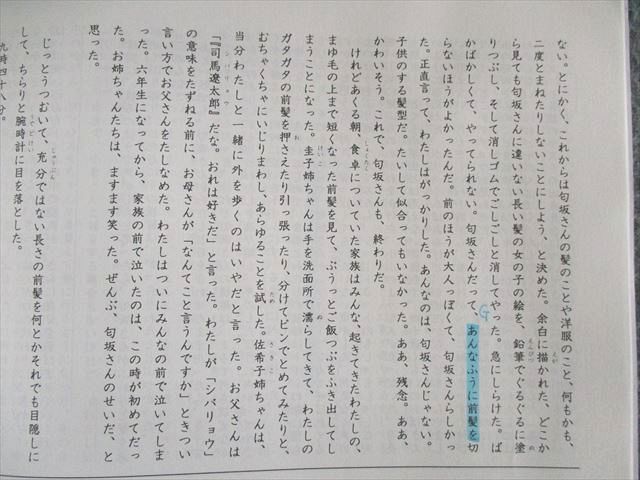 ない。とにかく、これからは匂坂さんの髪のことや洋服のこと、何もかも、
二度とまねたりしないことにしよう、と決めた。余白に描かれた、どこか
ら見ても匂坂さんに違いない長い髪の女の子の絵を、鉛筆でぐるぐるに塗
りつぶし、そして消しゴムでごしごしと消してやった。急にしらけた。ば
かばかしくて、やってられない。匂坂さんだって、あんなふうに前髪を切
らないほうがよかったんだ。前のほうが大人っぽくて、匂坂さんらしかっ
た。正直言って、わたしはがっかりした。あんなのは、匂坂さんじゃない。
子供のする髪型だ。たいして似合ってもいなかった。ああ、残念。ああ、
かわいそう。これで、匂坂さんも、終わりだ。
けれどあくる朝、食卓についていた家族はみんな、起きてきたわたしの、
まゆ毛の上まで短くなった前髪を見て、ぷうっとご飯つぶをふき出してし
まうことになった。圭子姉ちゃんは手を洗面所で濡らしてきて、わたしの
ガタガタの前髪を押さえたり引っ張ったり、分けてピンでとめてみたりと、
むちゃくちゃにいじりまわし、あらゆることを試した。佐希子姉ちゃんは、
当分わたしと一緒に外を歩くのはいやだと言った。お父さんは
「『司馬遼太郎』だな。おれは好きだ」と言った。わたしが「シバリョウ」
の意味をたずねる前に、お母さんが「なんてこと言うんですか」ときつい
言い方でお父さんをたしなめた。わたしはついにみんなの前で泣いてしま
った。六年生になってから、家族の前で泣いたのは、この時が初めてだっ
た。お姉ちゃんたちは、ますます笑った。ぜんぶ、匂坂さんのせいだ、と
思った。
じっとうつむいて、充分ではない長さの前髪を何とかそれでも目隠しに
して、ちらりと腕時計に目を落とした。
九時四十八分。